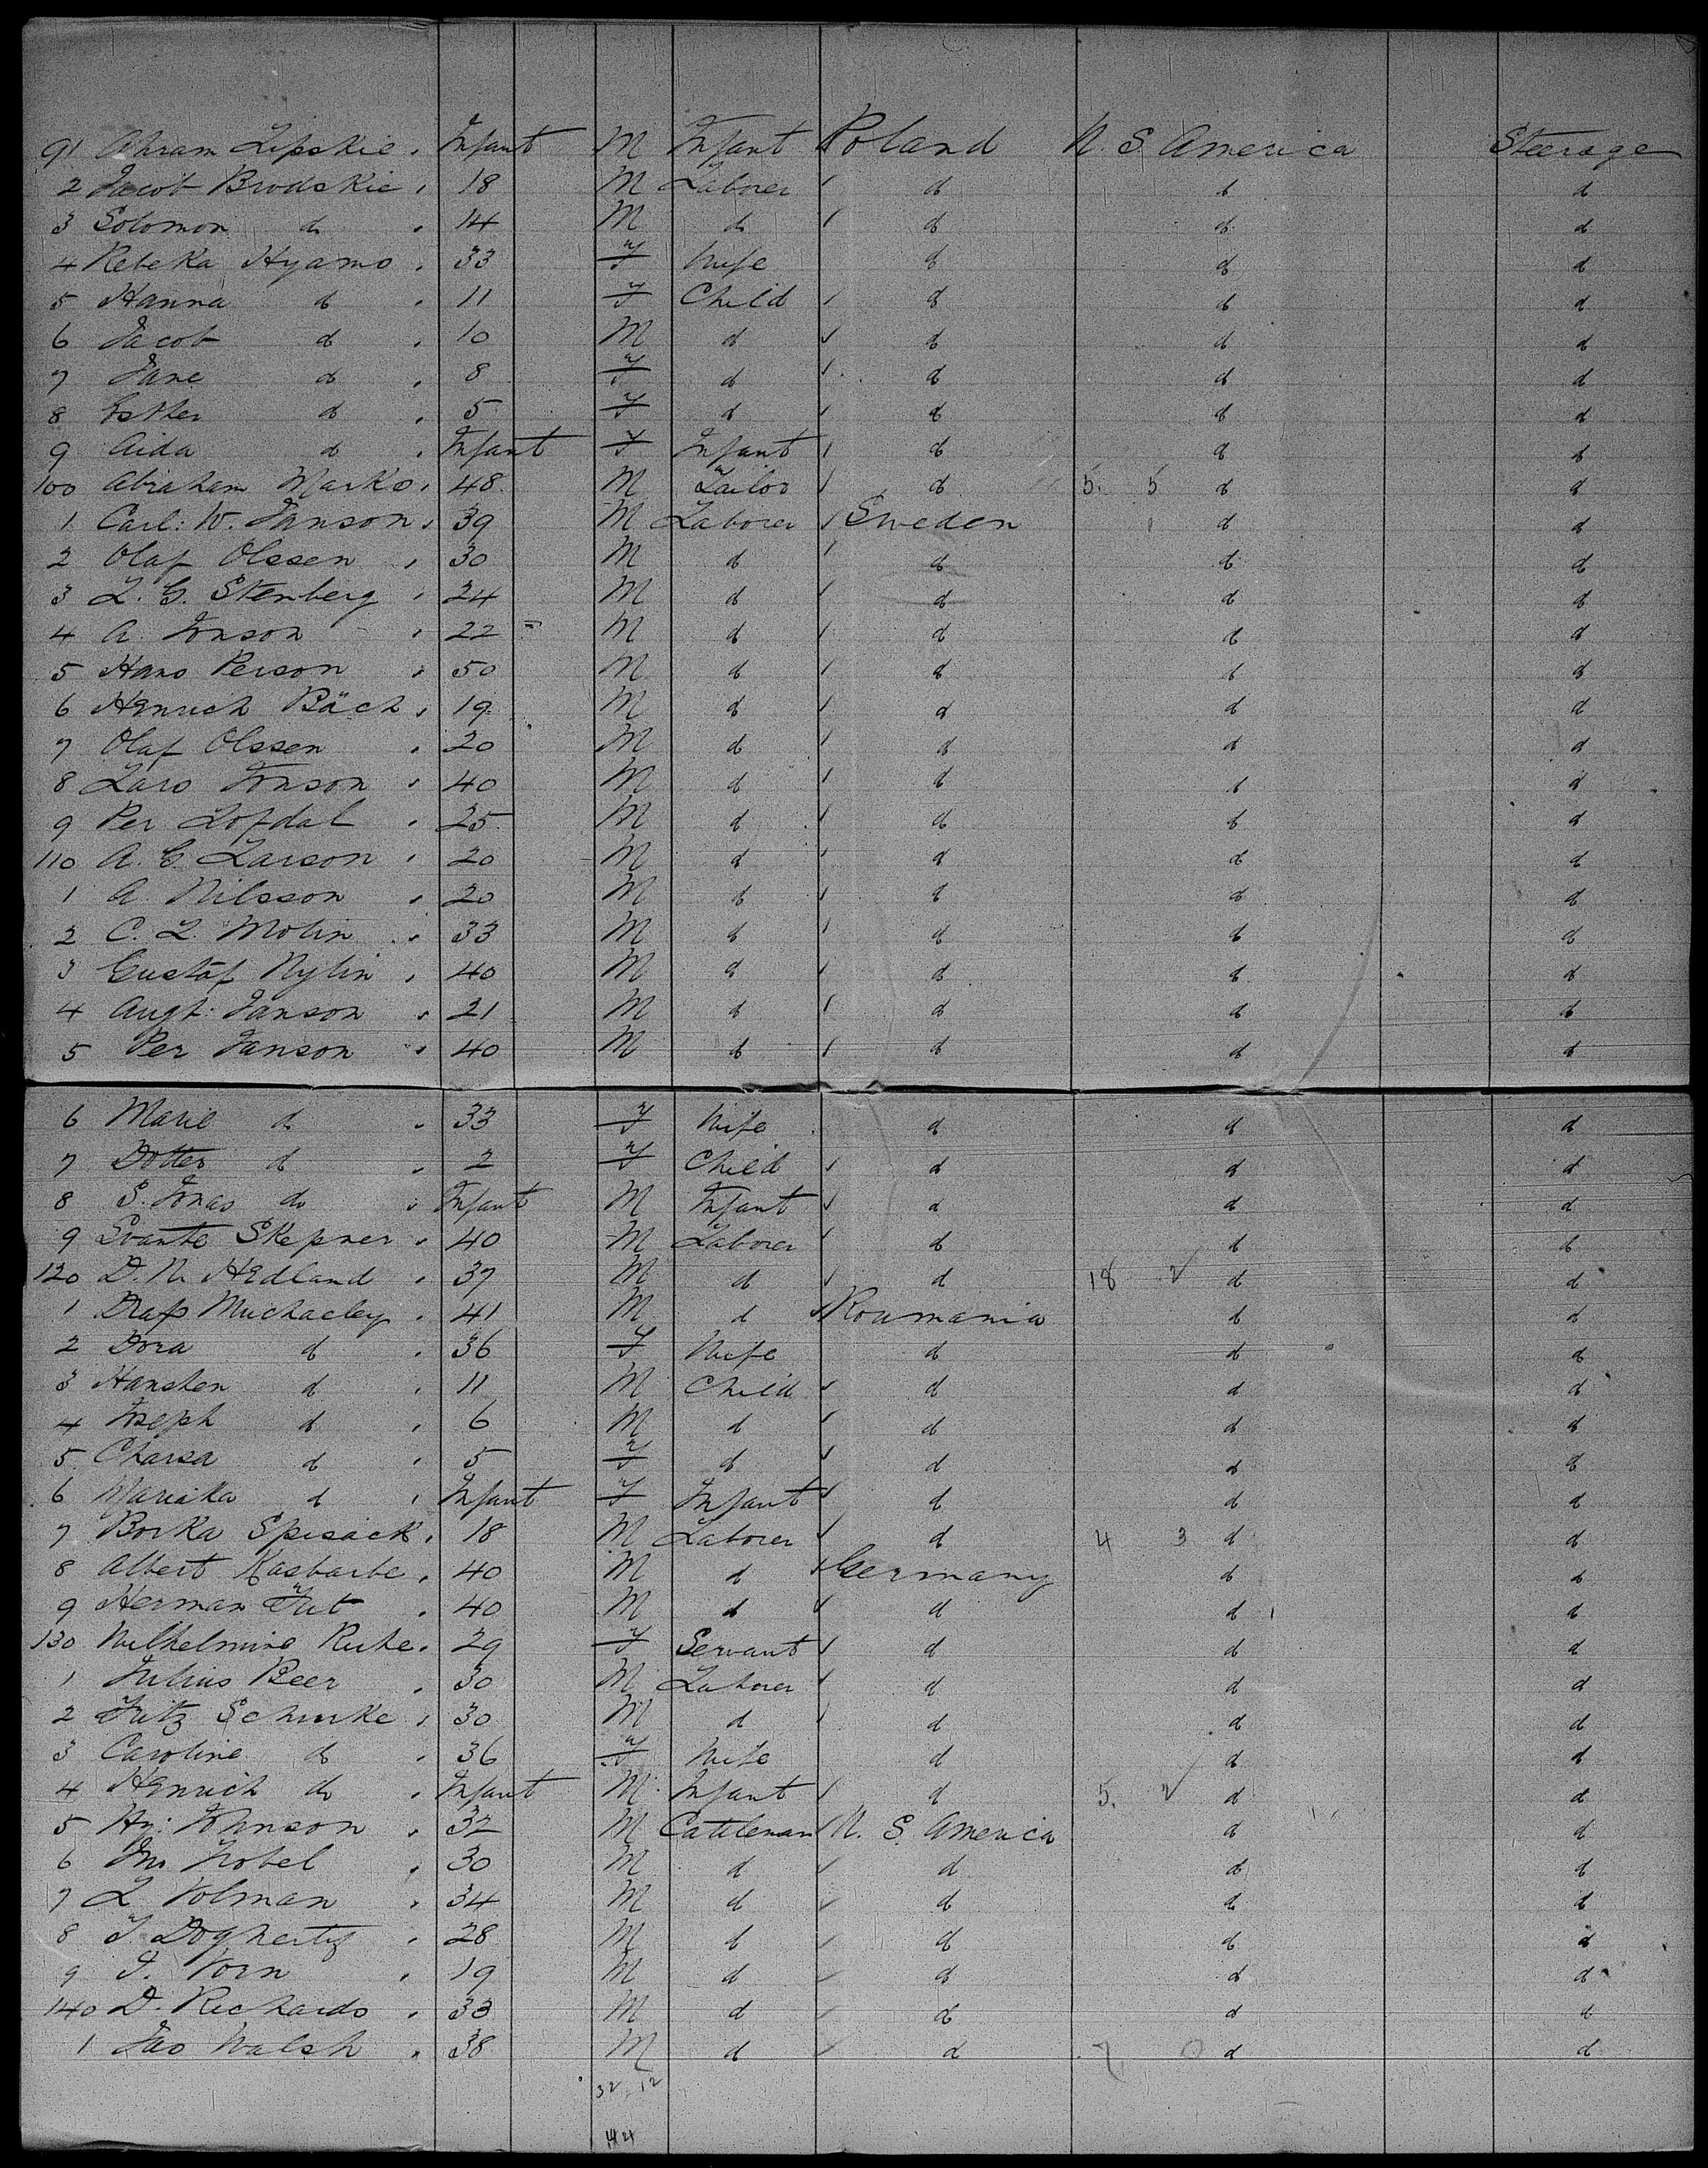 91 Abram Lipskie Infant M Infant Poland N. S. America Steerage
2 Jacob Brodskie 18 M Laborer d d d
3 Solomon do 14 M do d d d
4 Rebeka Hyams 33 F Wife d d d
5 Hanna d 11 F Child d d d
6 Jacob d 10 M d d d d
7 Jane d 8 F d d d d
8 Esther d 5 F d d d d
9 Aida d Infant F Infant d d d
100 Abraham Marks 48 M Tailor d 5. 5 d d
1 Carl: W. Janson 39 M Laborer Sweden d d
2 Olaf Olssen 30 M d d d d
3 L. G. Stenberg 24 M d d d d
4 A. Jonson 22 M d d d d
5 Hans Person 50 M d d d d
6 Henrich Bäch 19 M d d d d
7 Olaf Olssen 20 M d d d d
8 Lars Jonson 40 M d d d d
9 Per Lofdal 25 M d d d d
110 A. C. Larson 20 M d d d d
1 A. Nilsson 20 M d d d d
2 C. L. Molin 33 M d d d d
3 Gustaf Nylin 40 M d d d d
4 Augt: Janson 21 M d d d d
5 Per Janson 40 M d d d d
6 Marie do 33 F Wife d d d
7 Dotter d 2 F Child d d d
8 S. Jonas do Infant M Infant d d d
9 Svante Skepner 40 M Laborer d d d
120 D. N. Hedland 37 M d d 18 2 d d
1 Muchaeley 41 M d Roumania d d
2 Dora d 36 F Wife d d d
3 Hanshen d 11 M Child d d d
4 Joseph d 6 M d d d d
5 Charsa d 5 F d d d d
6 Mariska d Infant F Infant d d d
7 Borka Spisack 18 M Laborer d 4 3 d d
8 Albert Kasbarbe 40 M d Germany d d
9 Herman 40 M d d d d
130 Wilhelmine Ruhe 29 F Servant d d d
1 Julius Beer 30 M Laborer d d d
2 Fritz Schurke 30 M d d d d
3 Caroline do 36 F Wife d d d
4 Henrich do Infant M Infant d 5. 2 d d
5 Hy: Johnson 32 M Cattleman N. S. America d d
6 30 M d d d d
7 L. Volman 34 M d d d d
8 T. Dogherty 28 M d d d d
9 J. Vorn 19 M d d d d
140 D. Richards 33 M d d d d
1 Jas Walsh 38 M d d 7 0 d d
32 12
44